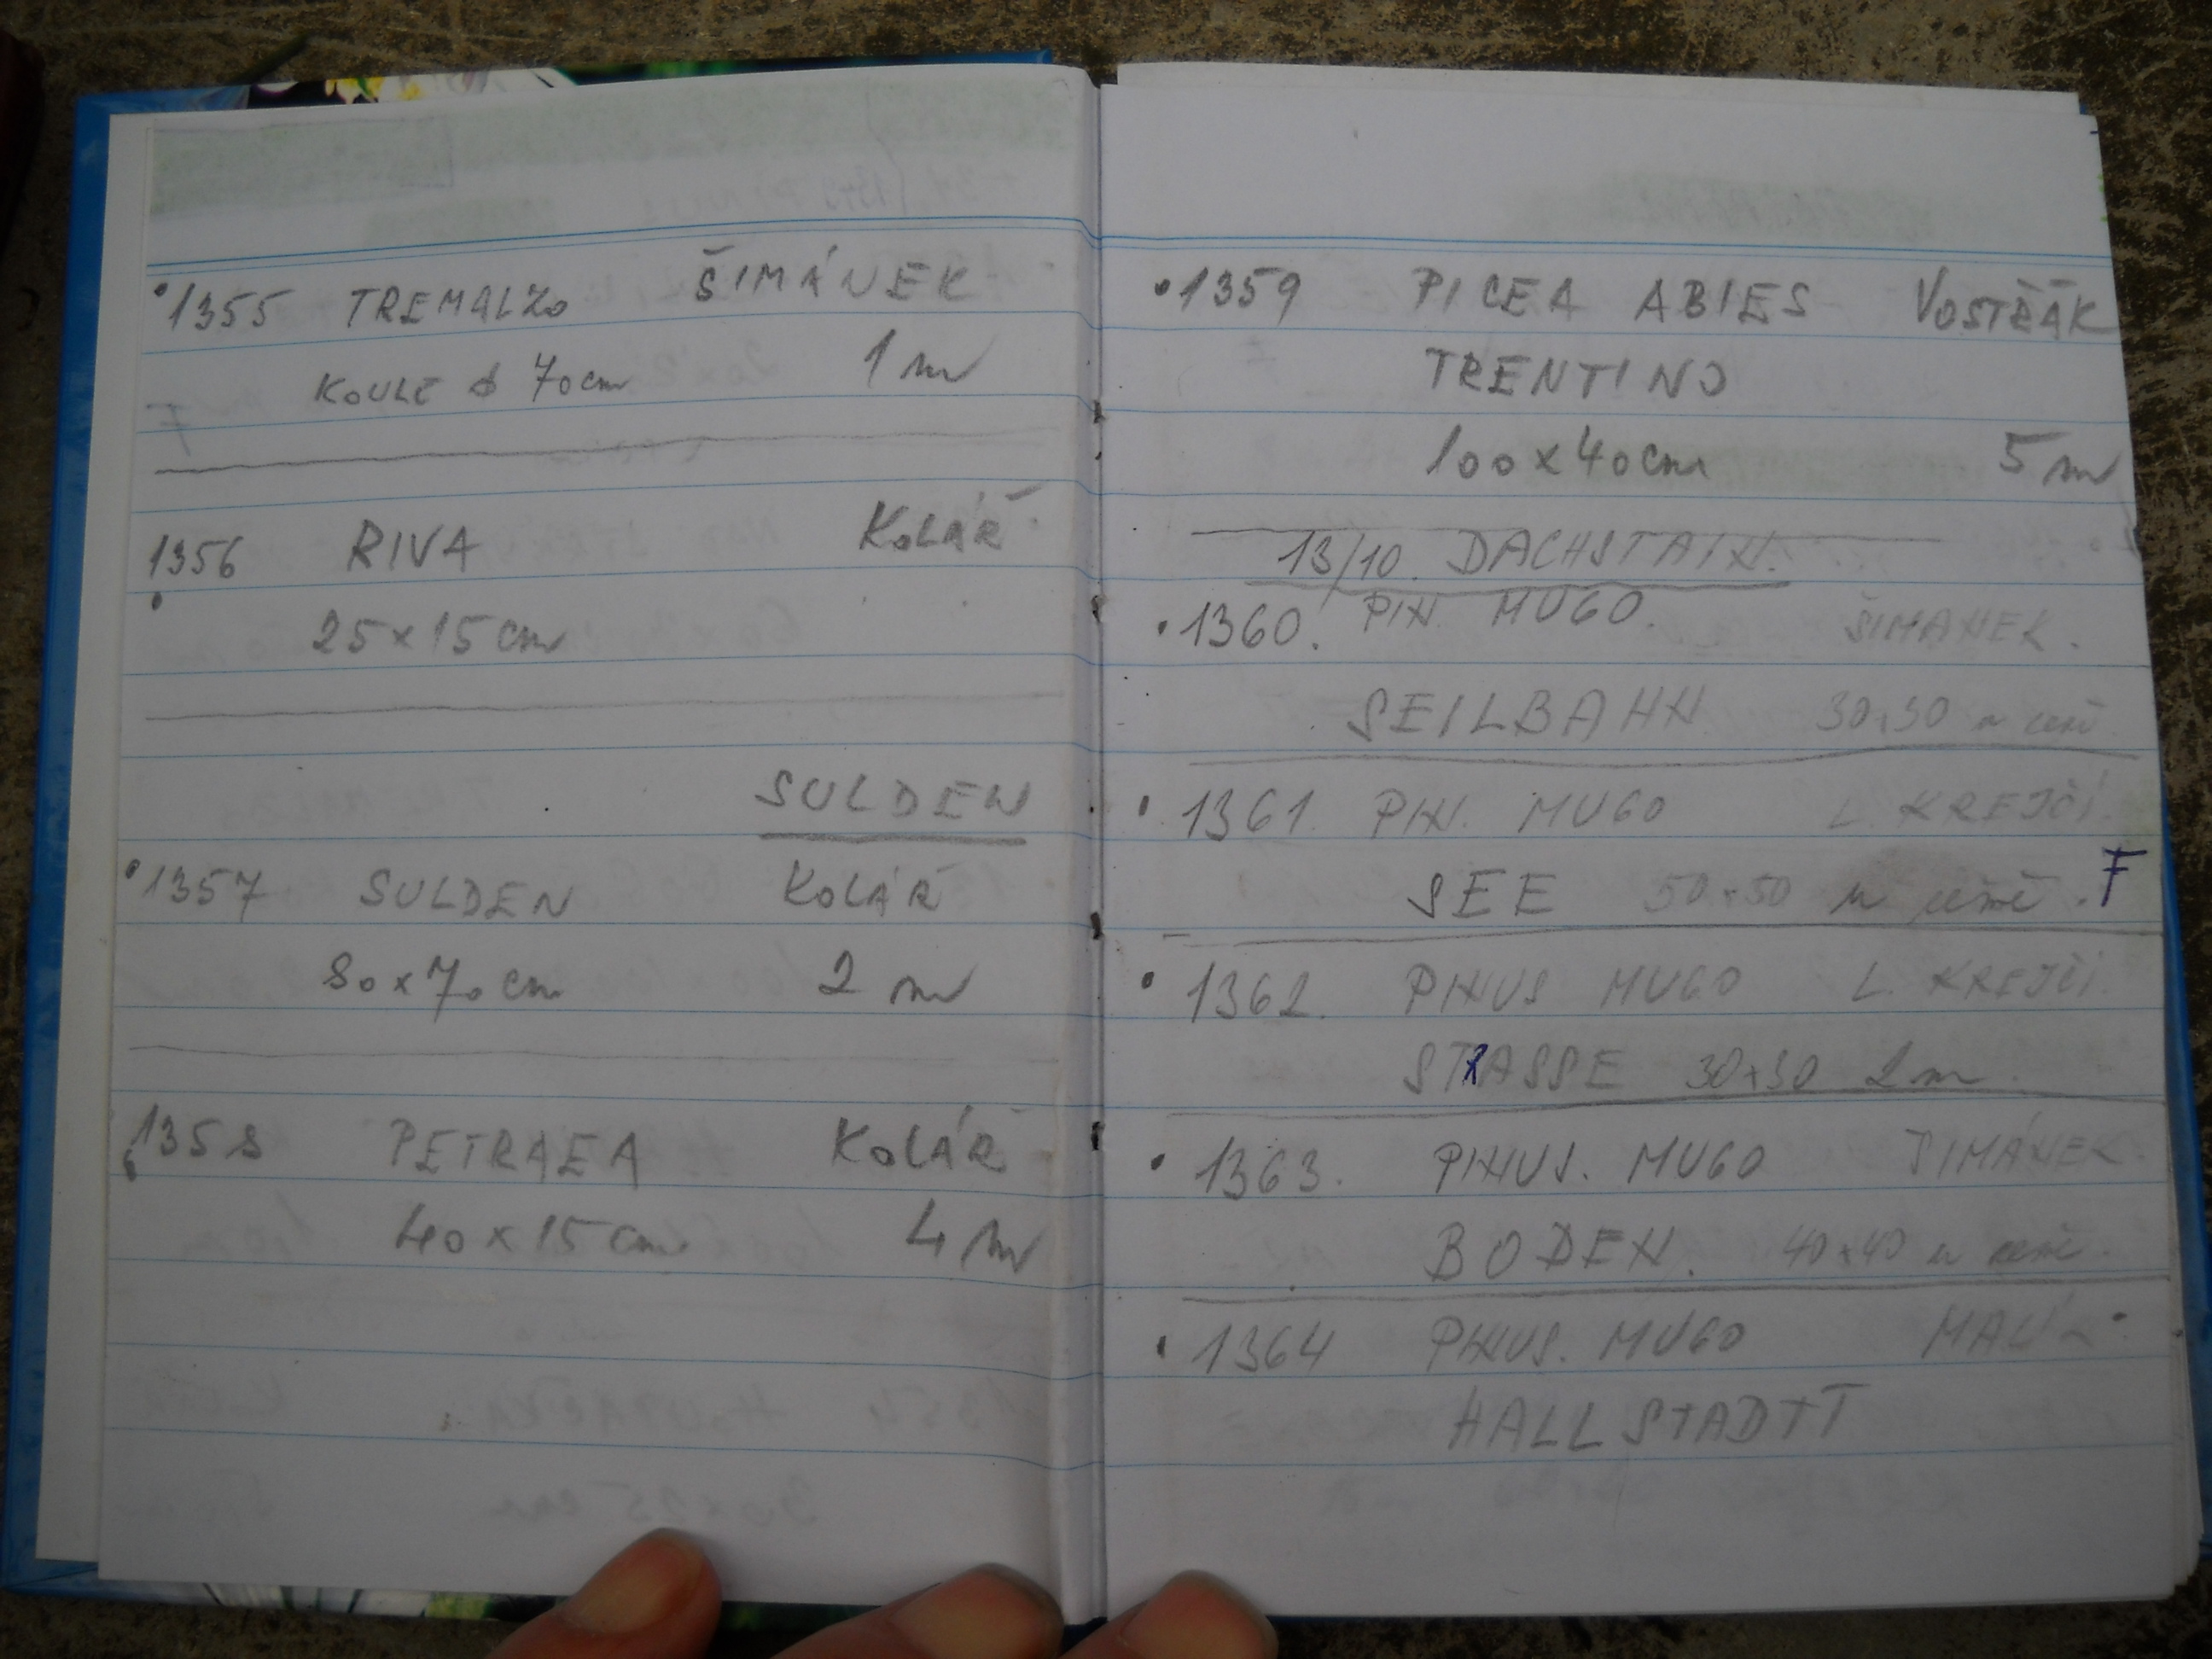 •1355 TREMALZO ŠIMÁNEK
KOULE ϕ 70cm 1 m
1356 RIVA KOLÁŘ
25×15 cm
SULDEN
•1357 SULDEN KOLÁŘ
80×70 cm 2 m
1358 PETRAEA KOLÁŘ
40×15 cm 4 m
•1359 PICEA ABIES VOSTŘÁK
TRENTINO
100×40cm 5 m
13/10. DACHSTAIN.
•1360. PIN. MUGO. ŠIMANEK.
SEILBAHN 30×30
•1361. PIN. MUGO L. KREJČÍ.
SEE 50×50 F
•1362. PINUS MUGO L. KREJČÍ.
STRASSE 30×30 2m
•1363. PINUS. MUGO ŠIMÁNEK.
BODEN. 40×40
•1364 PINUS. MUGO
HALLSTADTT